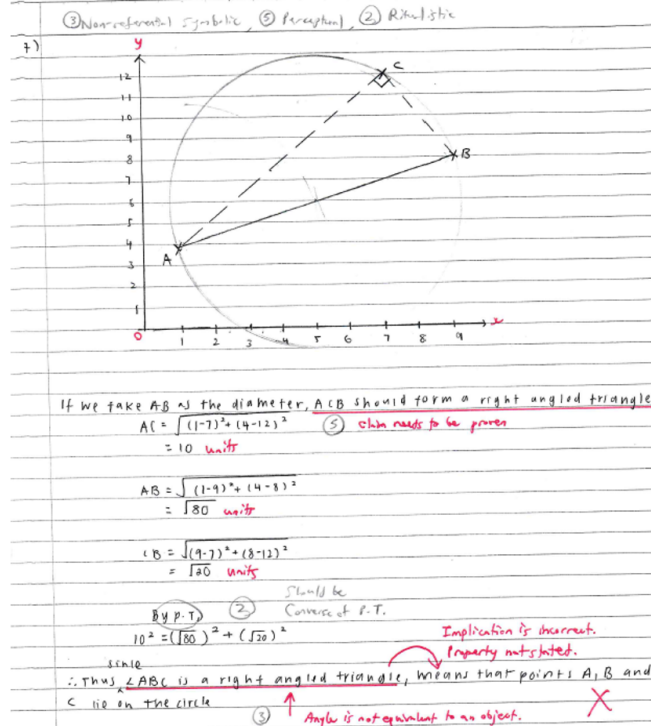 ③ Non-referential symbolic, ⑤ Perceptual, ② Ritualistic
7)
y
C
12
11
10
9
8
7
6
5
4
3
2
1
B
A
0
1 2 3 4 5 6 7 8 9
x
If we take AB as the diameter, ACB should form a right angled triangle
AC = √(1-7)²+(4-12)² ⑤ Claim needs to be proven
= 10 units
AB = √(1-9)²+(4-8)²
= √80 units
CB = √(9-7)²+(8-12)²
= √20 units
By P.T, ② Should be
Converse of P.T.
10² = (√80)² + (√20)²
Implication is incorrect.
Property not stated.
since
∴ Thus ∠ABC is a right angled triangle, means that points A, B and
C lie on the circle
③ Angle is not equivalent to an object.